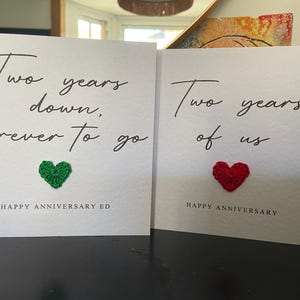 Two years
down,
rever to go
HAPPY ANNIVERSARY ED
Two years
of us
HAPPY ANNIVERSARY